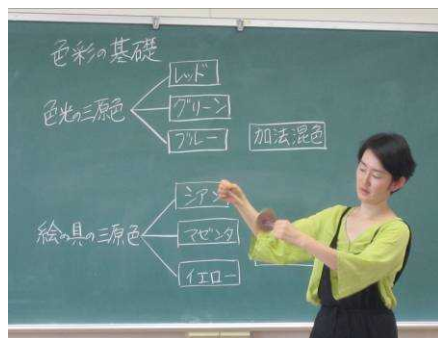 色彩の基礎
色光の三原色
レッド
グリーン
ブルー
加法混色
絵の具の三原色
シアン
マゼンタ
イエロー